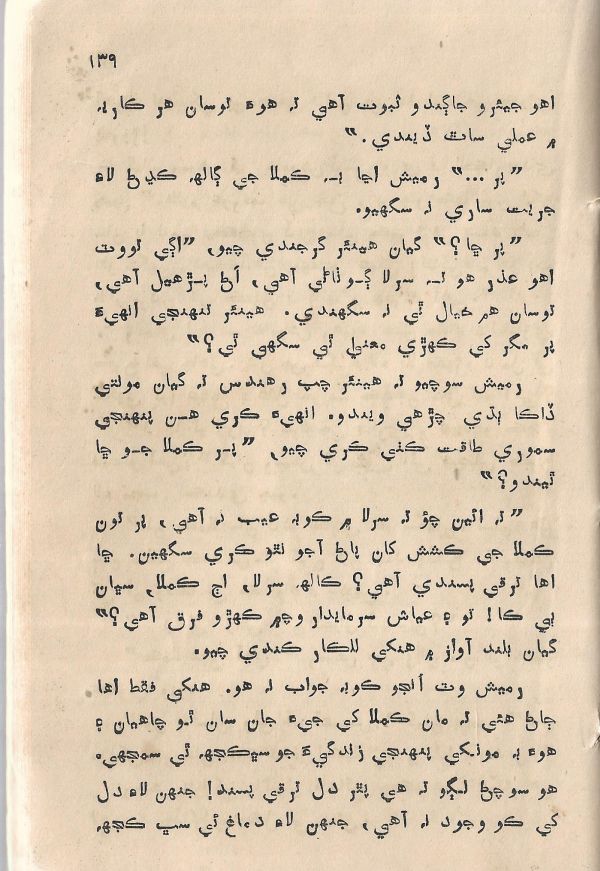 ١٣٩
اهو جيئرو جاڳندو ثبوت آهي تہ هوءَ توسان هر ڪاريہ
۾ عملي ساٿ ڏيندي.”
”پر ...“ رميش اڃا بہ ڪملا جي ڳالهہ ڪڍڻ لاءِ
جريت ساري نہ سگهيو.
”پر ڇا؟“ گيان هينئر گرجندي چيو، ”اڳي تووٽ
اهو عذر هو تہ سرلا ڳوٺاڻي آهي، اڻ پڙهيل آهي،
توسان هم خيال ٿي نہ سگهندي. هينئر تنهنجي انهيءَ
پر مگر کي ڪهڙي معنيٰ ٿي سگهي ٿي؟“
رميش سوچيو تہ هينئر چپ رهندس تہ گيان مونتي
ڏاڪا ٻڌي چڙهي ويندو. انهيءَ ڪري هن پنهنجي
سموري طاقت ڪٺي ڪري چيو، ”پر ڪملا جو ڇا
ٿيندو؟“
”تہ ائين چؤ تہ سرلا ۾ ڪوبہ عيب نہ آهي، پر تون
ڪملا جي ڪشش کان پاڻ آجو نٿو ڪري سگهين. ڇا
اها ترقي پسندي آهي؟ ڪالهہ سرلا، اڄ ڪملا، سڀان
ٻي ڪا! تو ۽ عياش سرمايدار وچ۾ ڪهڙو فرق آهي؟“
گيان بلند آواز ۾ هنکي للڪار ڪندي چيو.
رميش وٽ انجو ڪوبہ جواب نہ هو. هنکي فقط اها
ڄاڻ هئي تہ مان ڪملا کي جيءَ جان سان ٿو چاهيان ۽
هوءَ بہ مونکي پنهنجي زندگيءَ جو سڀڪجهہ ٿي سمجهي.
هو سوچڻ لڳو تہ هي پٿر دل ترقي پسند! جنهن لاءِ دل
کي ڪو وجود نہ آهي، جنهن لاءِ دماغ ئي سڀ ڪجهہ